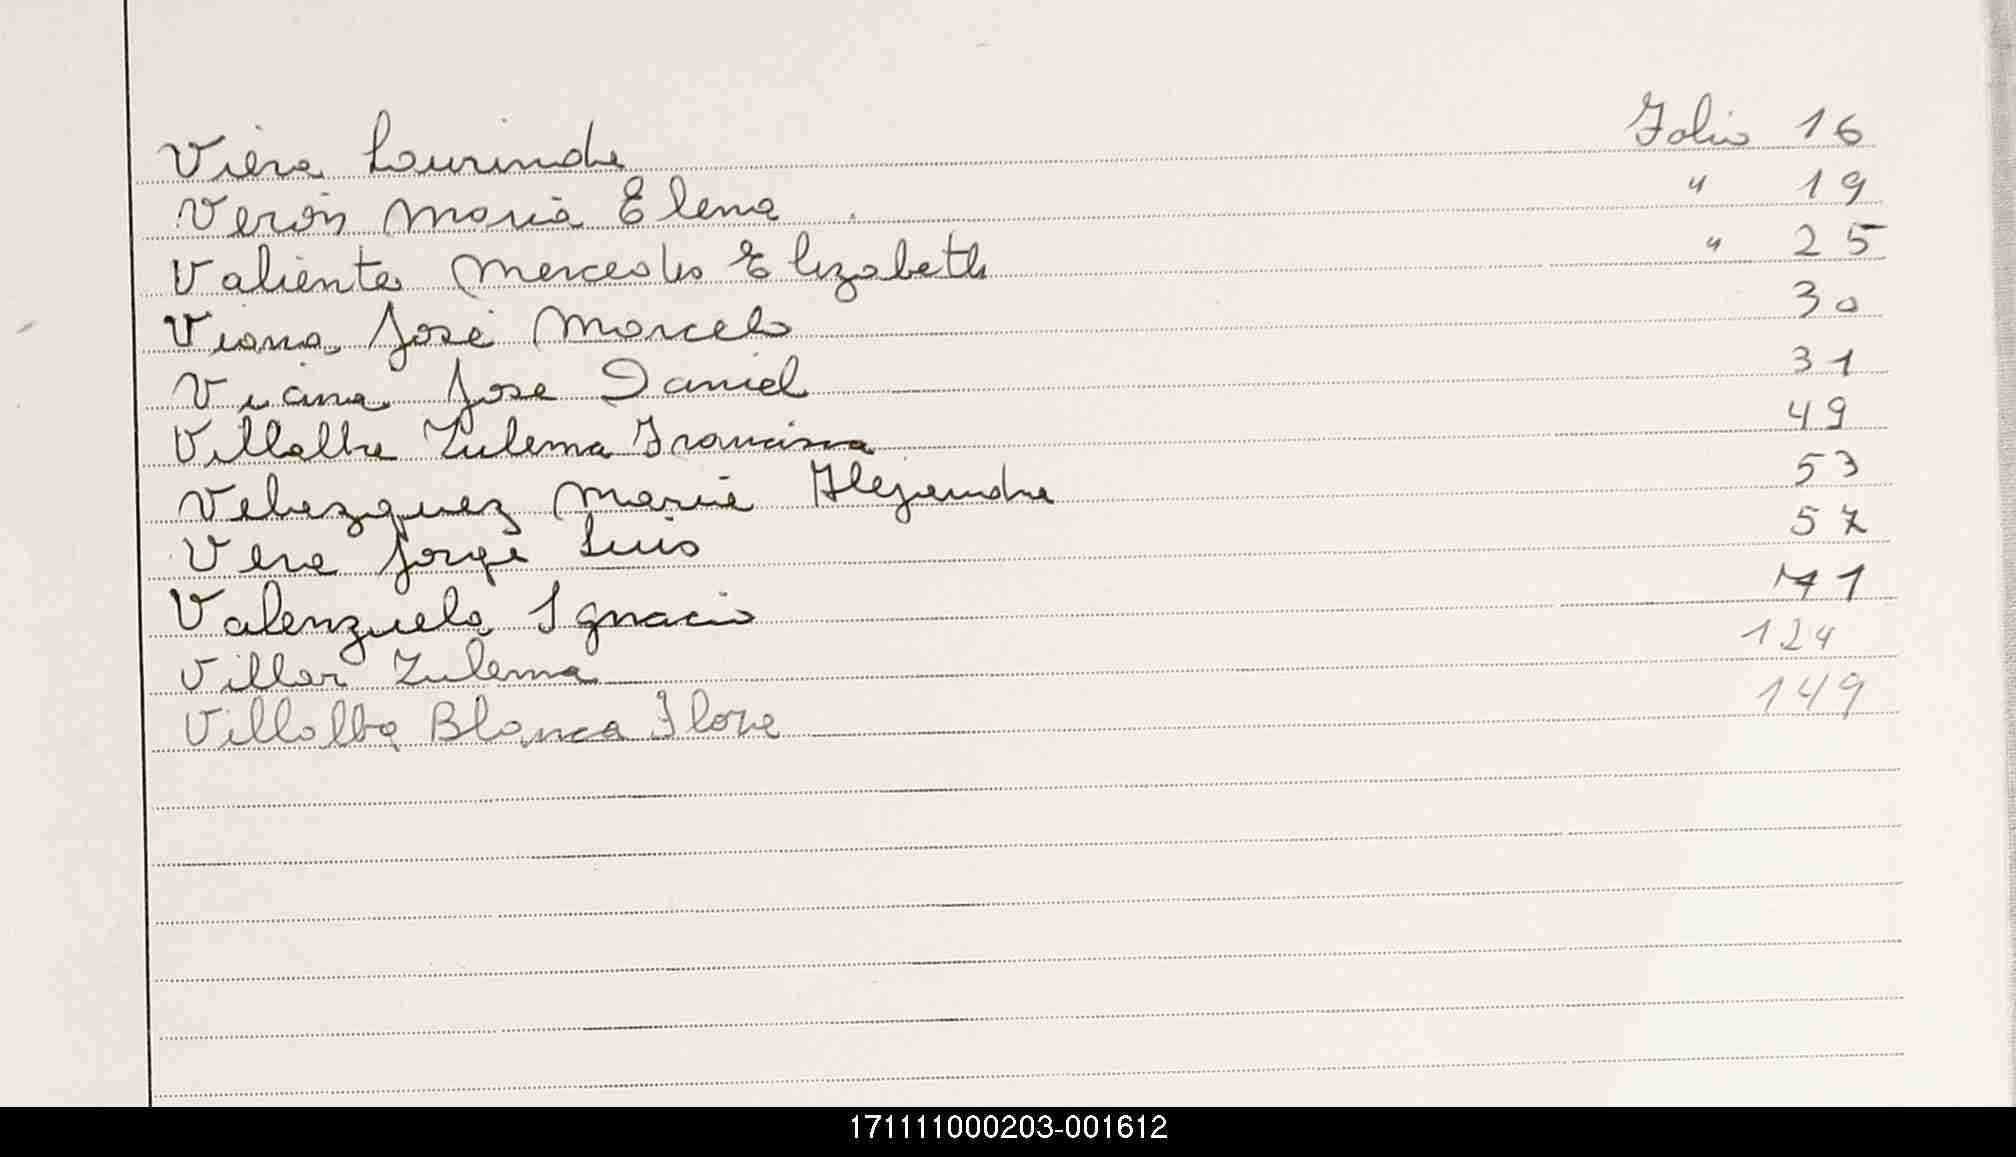 Viera Laurinda Folio 16
Verón María Elena " 19
Valiente Mercedes Elizabeth " 25
Viana José Marcelo 30
Viana Jose Daniel 31
Villalba Zulema Francisca 49
Velazquez María Alejandra 53
Vera Jorge Luis 57
Valenzuela Ignacio
Villar Zulema 124
Villalba Blanca Flora 149
171111000203-001612